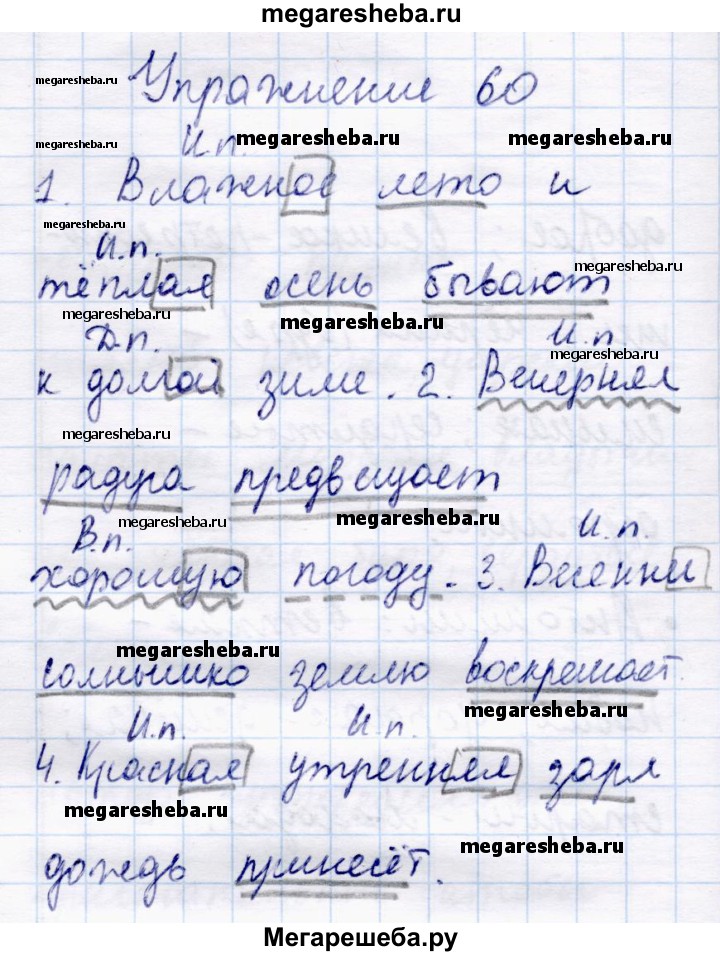 megaresheba.ru
megaresheba.ru
Упражнение 60
И.п. megaresheba.ru megaresheba.ru
megaresheba.ru
1. Влажное лето и
megaresheba.ru
И.п.
megaresheba.ru
тёплая осень бывают
megaresheba.ru megaresheba.ru
Д.п. И.п.
megaresheba.ru
к долгой зиме. 2. Вечерняя
megaresheba.ru megaresheba.ru
радуга предвещает
megaresheba.ru megaresheba.ru
В.п. И.п.
хорошую погоду. 3. Весенни
megaresheba.ru
солнышко землю воскрешает.
megaresheba.ru
И.п. И.п.
4. Красная утренняя заря
megaresheba.ru
megaresheba.ru
дождь принесёт.
Мегарешеба.ру